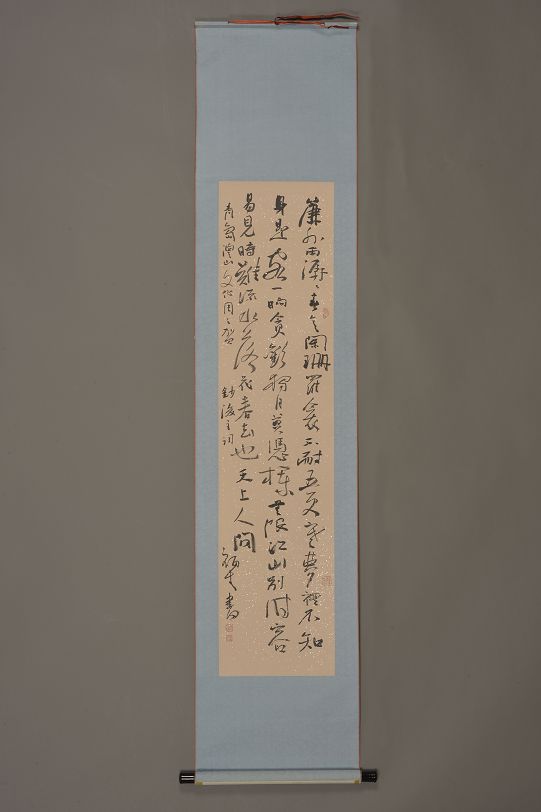 簾外雨潺〻春意闌珊羅衾不耐五更寒夢裡不知
身是客一晌貪歡獨自莫憑欄無限江山別時容
易見時難流水落花春去也天上人間
文化 鈔後主詞 書